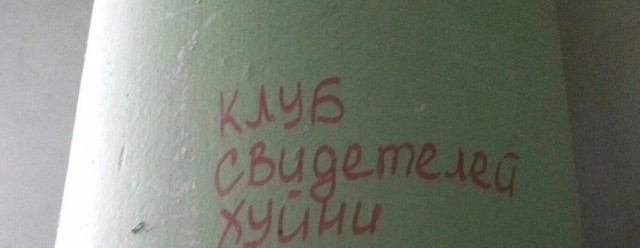 клуб
свидетелей
хуйни